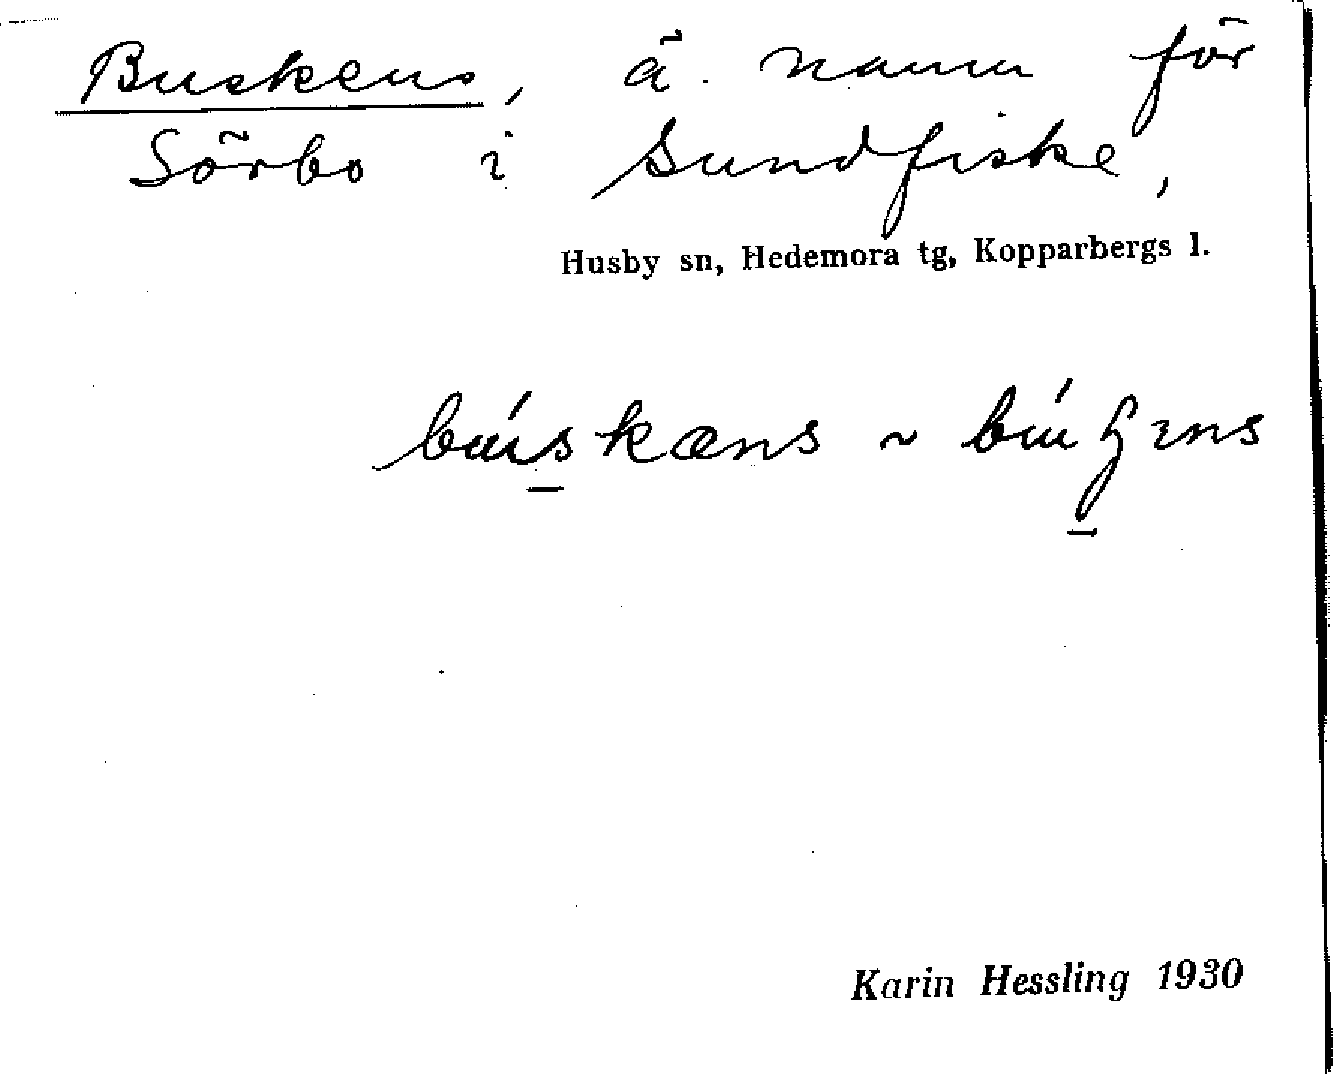 Buskens, ä. namn för
Sörbo i Sundfiske,
Husby sn, Hedemora tg, Kopparbergs l.
búskæns ~
Karin Hessling 1930